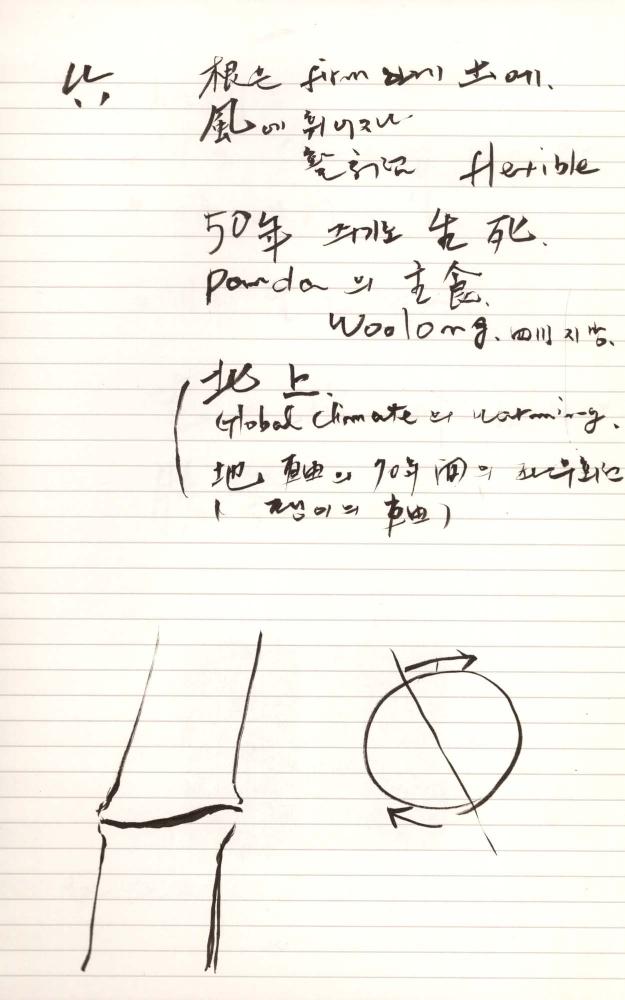 根은 firm 하게 土에.
風에 휘어지나
flexible
50年 주기로 生死.
panda의 主食.
Woolong. 四川지방.
地上.
Global climate의 warming.
地軸의 70年間의
( 팽이의 軸)